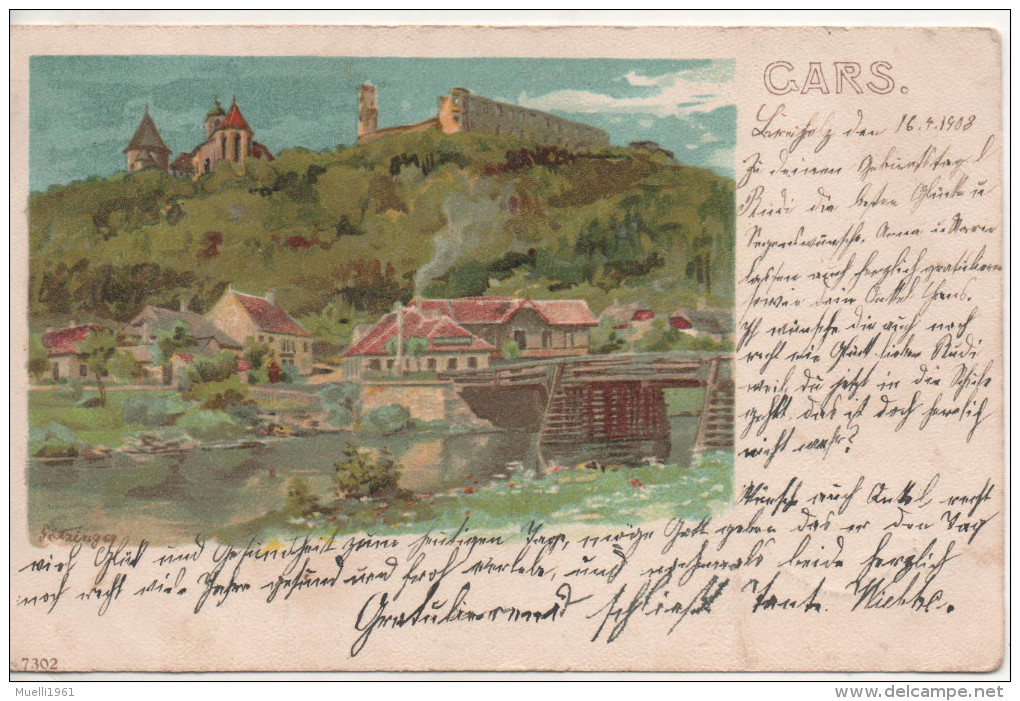 GARS.
den 16.4.1903
Zu deinem Geburtstag
Rudi die besten Glück u
Segenswünsche, Anna u Marie
lassen auch herzlich gratulieren
sowie dein Onkel Hans.
Ich wünsche dir auch noch
recht viel Glück lieber Rudi
weil du jetzt in die Schule
gehst das ist doch herrlich
nicht wahr?
Wünsch auch Onkel recht
viel Glück und Gesundheit zum heutigen Tage, möge Gott geben das er den Tag
noch recht viele Jahre gesund und froh verlebe, und nochmals beide herzlich
Gratulierend schließt Tante
Götzinger
7302
Muelli1961
www.delcampe.net